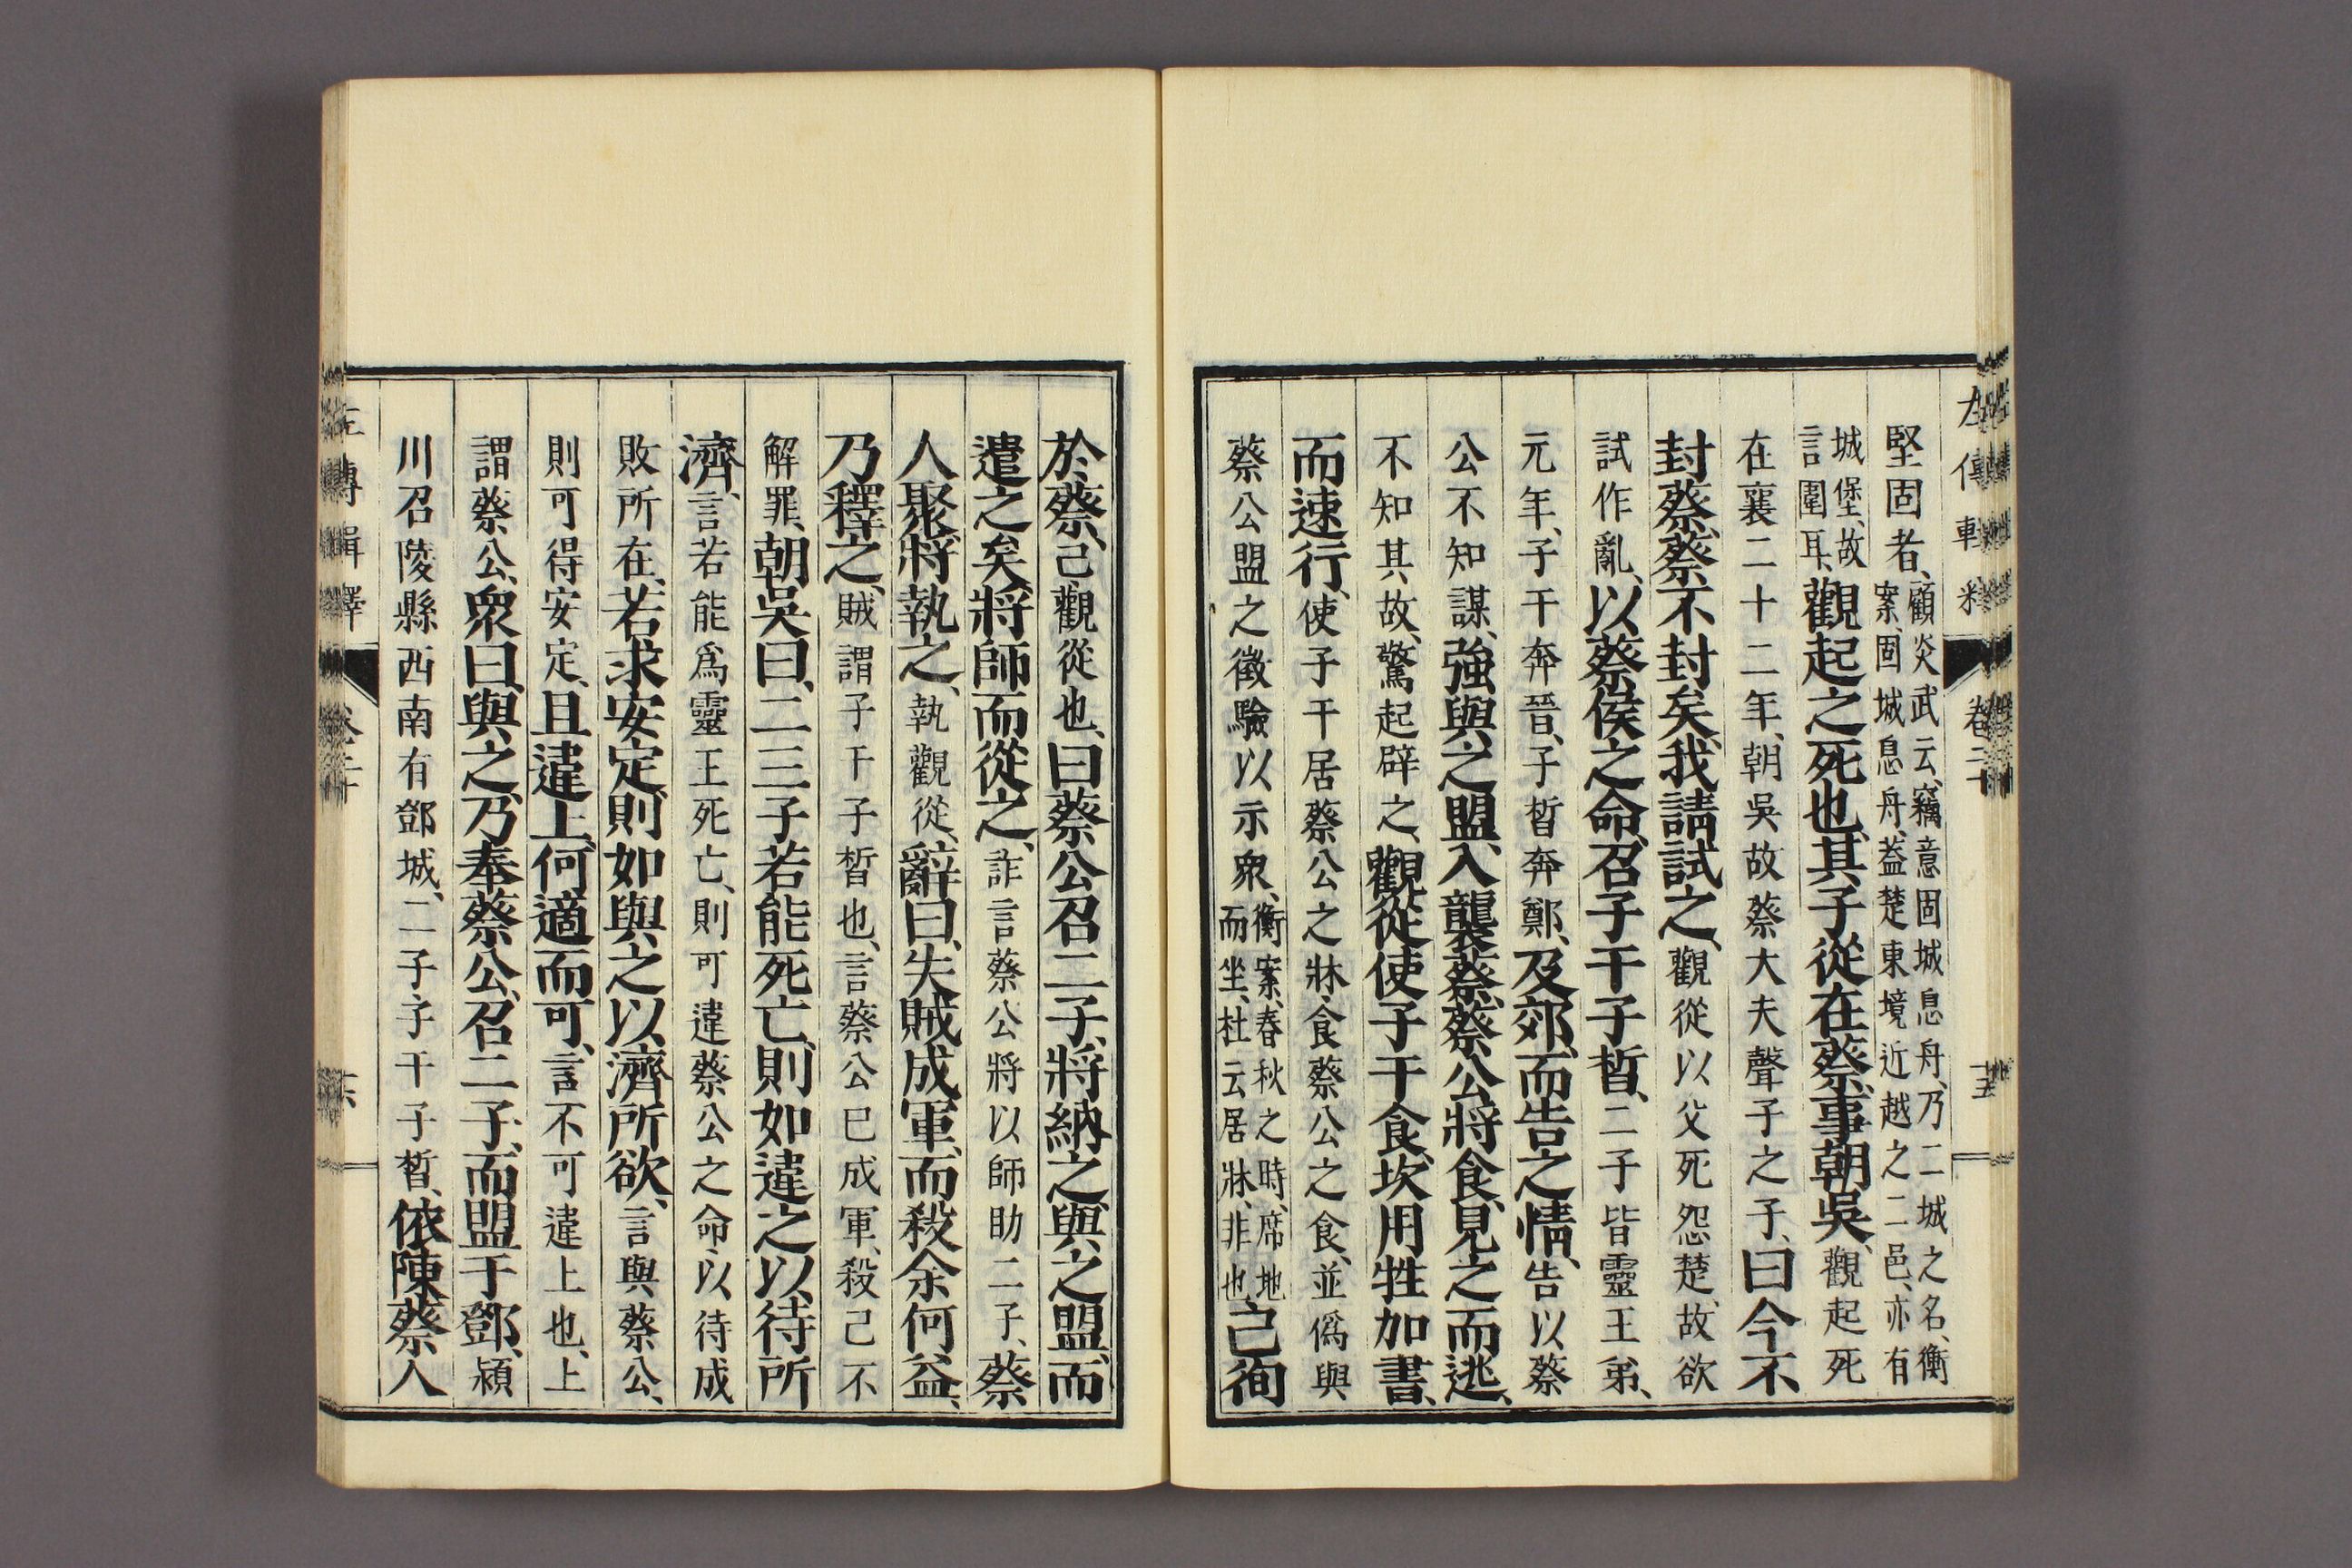 堅固者、顧炎武云、竊意固城息舟、乃二城之名、衡
案、固城息舟、葢楚東境近越之二邑、亦有
城堡、故
言圍耳、觀起之死也、其子從在蔡、事朝吳、觀起死
在襄二十二年、朝吳故蔡大夫聲子之子、曰今不
封蔡、蔡不封矣、我請試之、觀從以父死怨楚、故欲
試作亂、以蔡侯之命、召子干子晳、二子皆靈王弟、
元年、子干奔晉、子晳奔鄭、及郊、而告之情、告以蔡
公不知謀、強與之盟、入襲蔡、蔡公將食、見之而逃、
不知其故、驚起辟之、觀從使子干食、坎用牲加書、
而速行、使子干居蔡公之牀、食蔡公之食、並僞與
蔡公盟之徵驗以示衆、衡案、春秋之時、席地
而坐、杜云居牀、非也、己徇
左傳輯釋 卷二十 十五
於蔡、己觀從也、曰蔡公召二子、將納之、與之盟、而
遣之矣、將師而從之、詐言蔡公將以師助二子、蔡
人聚、將執之、執觀從、辭曰、失賊成軍、而殺余何益、
乃釋之、賊謂子干子晳也、言蔡公巳成軍、殺己不
解罪、朝吳曰、二三子若能死亡、則如違之、以待所
濟、言若能爲靈王死亡、則可違蔡公之命、以待成
敗所在、若求安定、則如與之、以濟所欲、言與蔡公、
則可得安定、且違上、何適而可、言不可違上也、上
謂蔡公、衆曰、與之、乃奉蔡公、召二子、而盟于鄧、潁
川召陵縣西南有鄧城、二子子干子晳、依陳蔡人
左傳輯釋 卷二十 十六